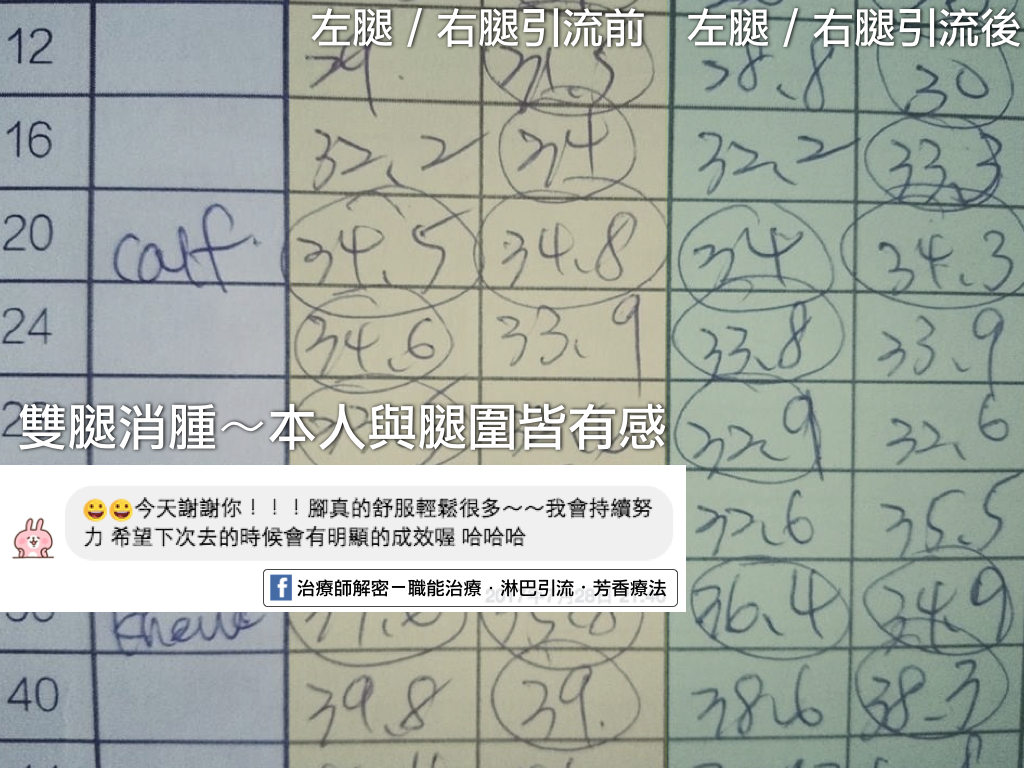 左腿 / 右腿引流前 左腿 / 右腿引流後
12 30
16 32.2 34 32.2 33.3
20 calf 34.5 34.8 34 34.3
24 34.6 33.9 33.8 33.9
雙腿消腫～本人與腿圍皆有感 32.9 32.6
😀😀今天謝謝你！！！腳真的舒服輕鬆很多～～我會持續努
力 希望下次去的時候會有明顯的成效喔 哈哈哈
35.5
治療師解密－職能治療．淋巴引流．芳香療法
36.4 34.9
40 39.8 39. 38.6 38.3